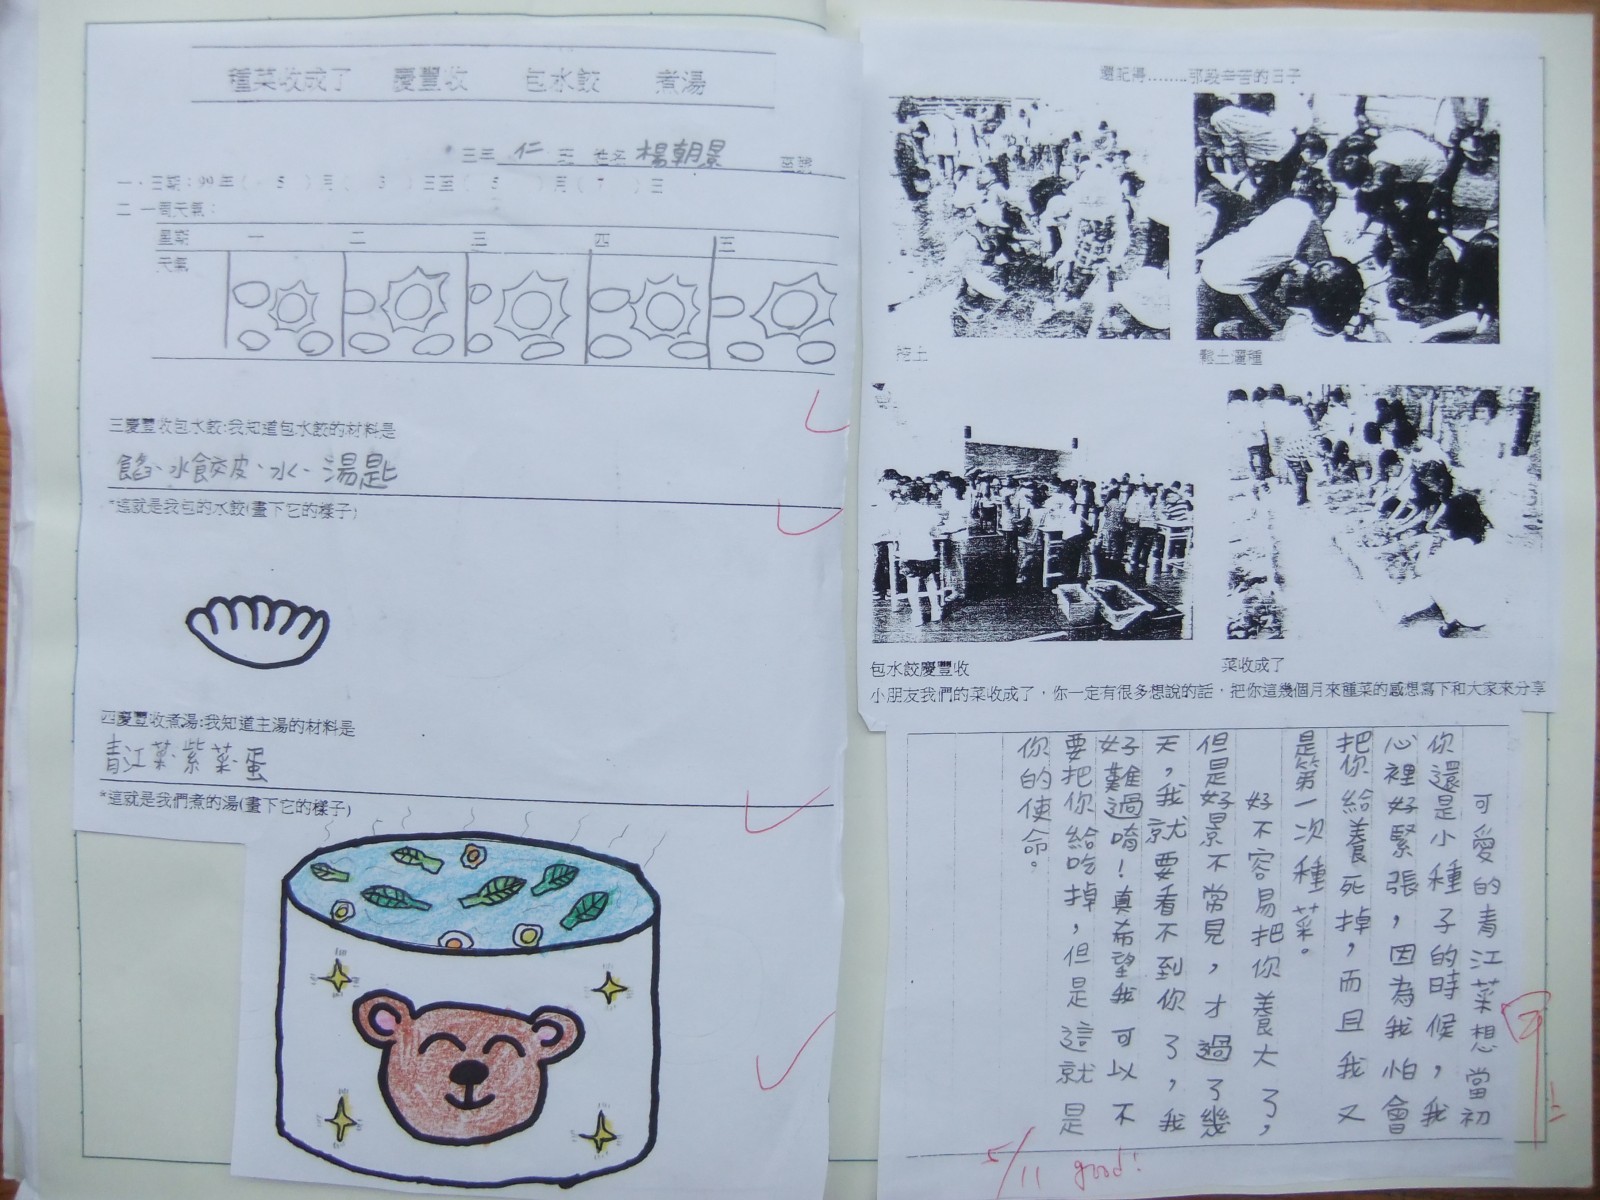 種菜收成了 慶豐收 包水餃 煮湯
三年 仁 班 姓名 楊朝景 座號
一、日期:99年( 5 )月( 3 )日至( 5 )月( 7 )日
二 一周天氣:
星期 一 二 三 四 五
天氣
三慶豐收包水餃:我知道包水餃的材料是
餡、水餃皮、水、湯匙
*這就是我包的水餃(畫下它的樣子)
四慶豐收煮湯:我知道主湯的材料是
青江菜、紫菜、蛋
*這就是我們煮的湯(畫下它的樣子)
還記得........那段辛苦的日子
挖土
鬆土灑種
包水餃慶豐收
菜收成了
小朋友我們的菜收成了,你一定有很多想說的話,把你這幾個月來種菜的感想寫下和大家來分享
可愛的青江菜想當初
你還是小種子的時候,我
心裡好緊張,因為我怕會
把你給養死掉,而且我又
是第一次種菜。
好不容易把你養大了,
但是好景不常見,才過了幾
天,我就要看不到你了,我
好難過唷!真希望我可以不
要把你給吃掉,但是這就是
你的使命。
5/11 good!